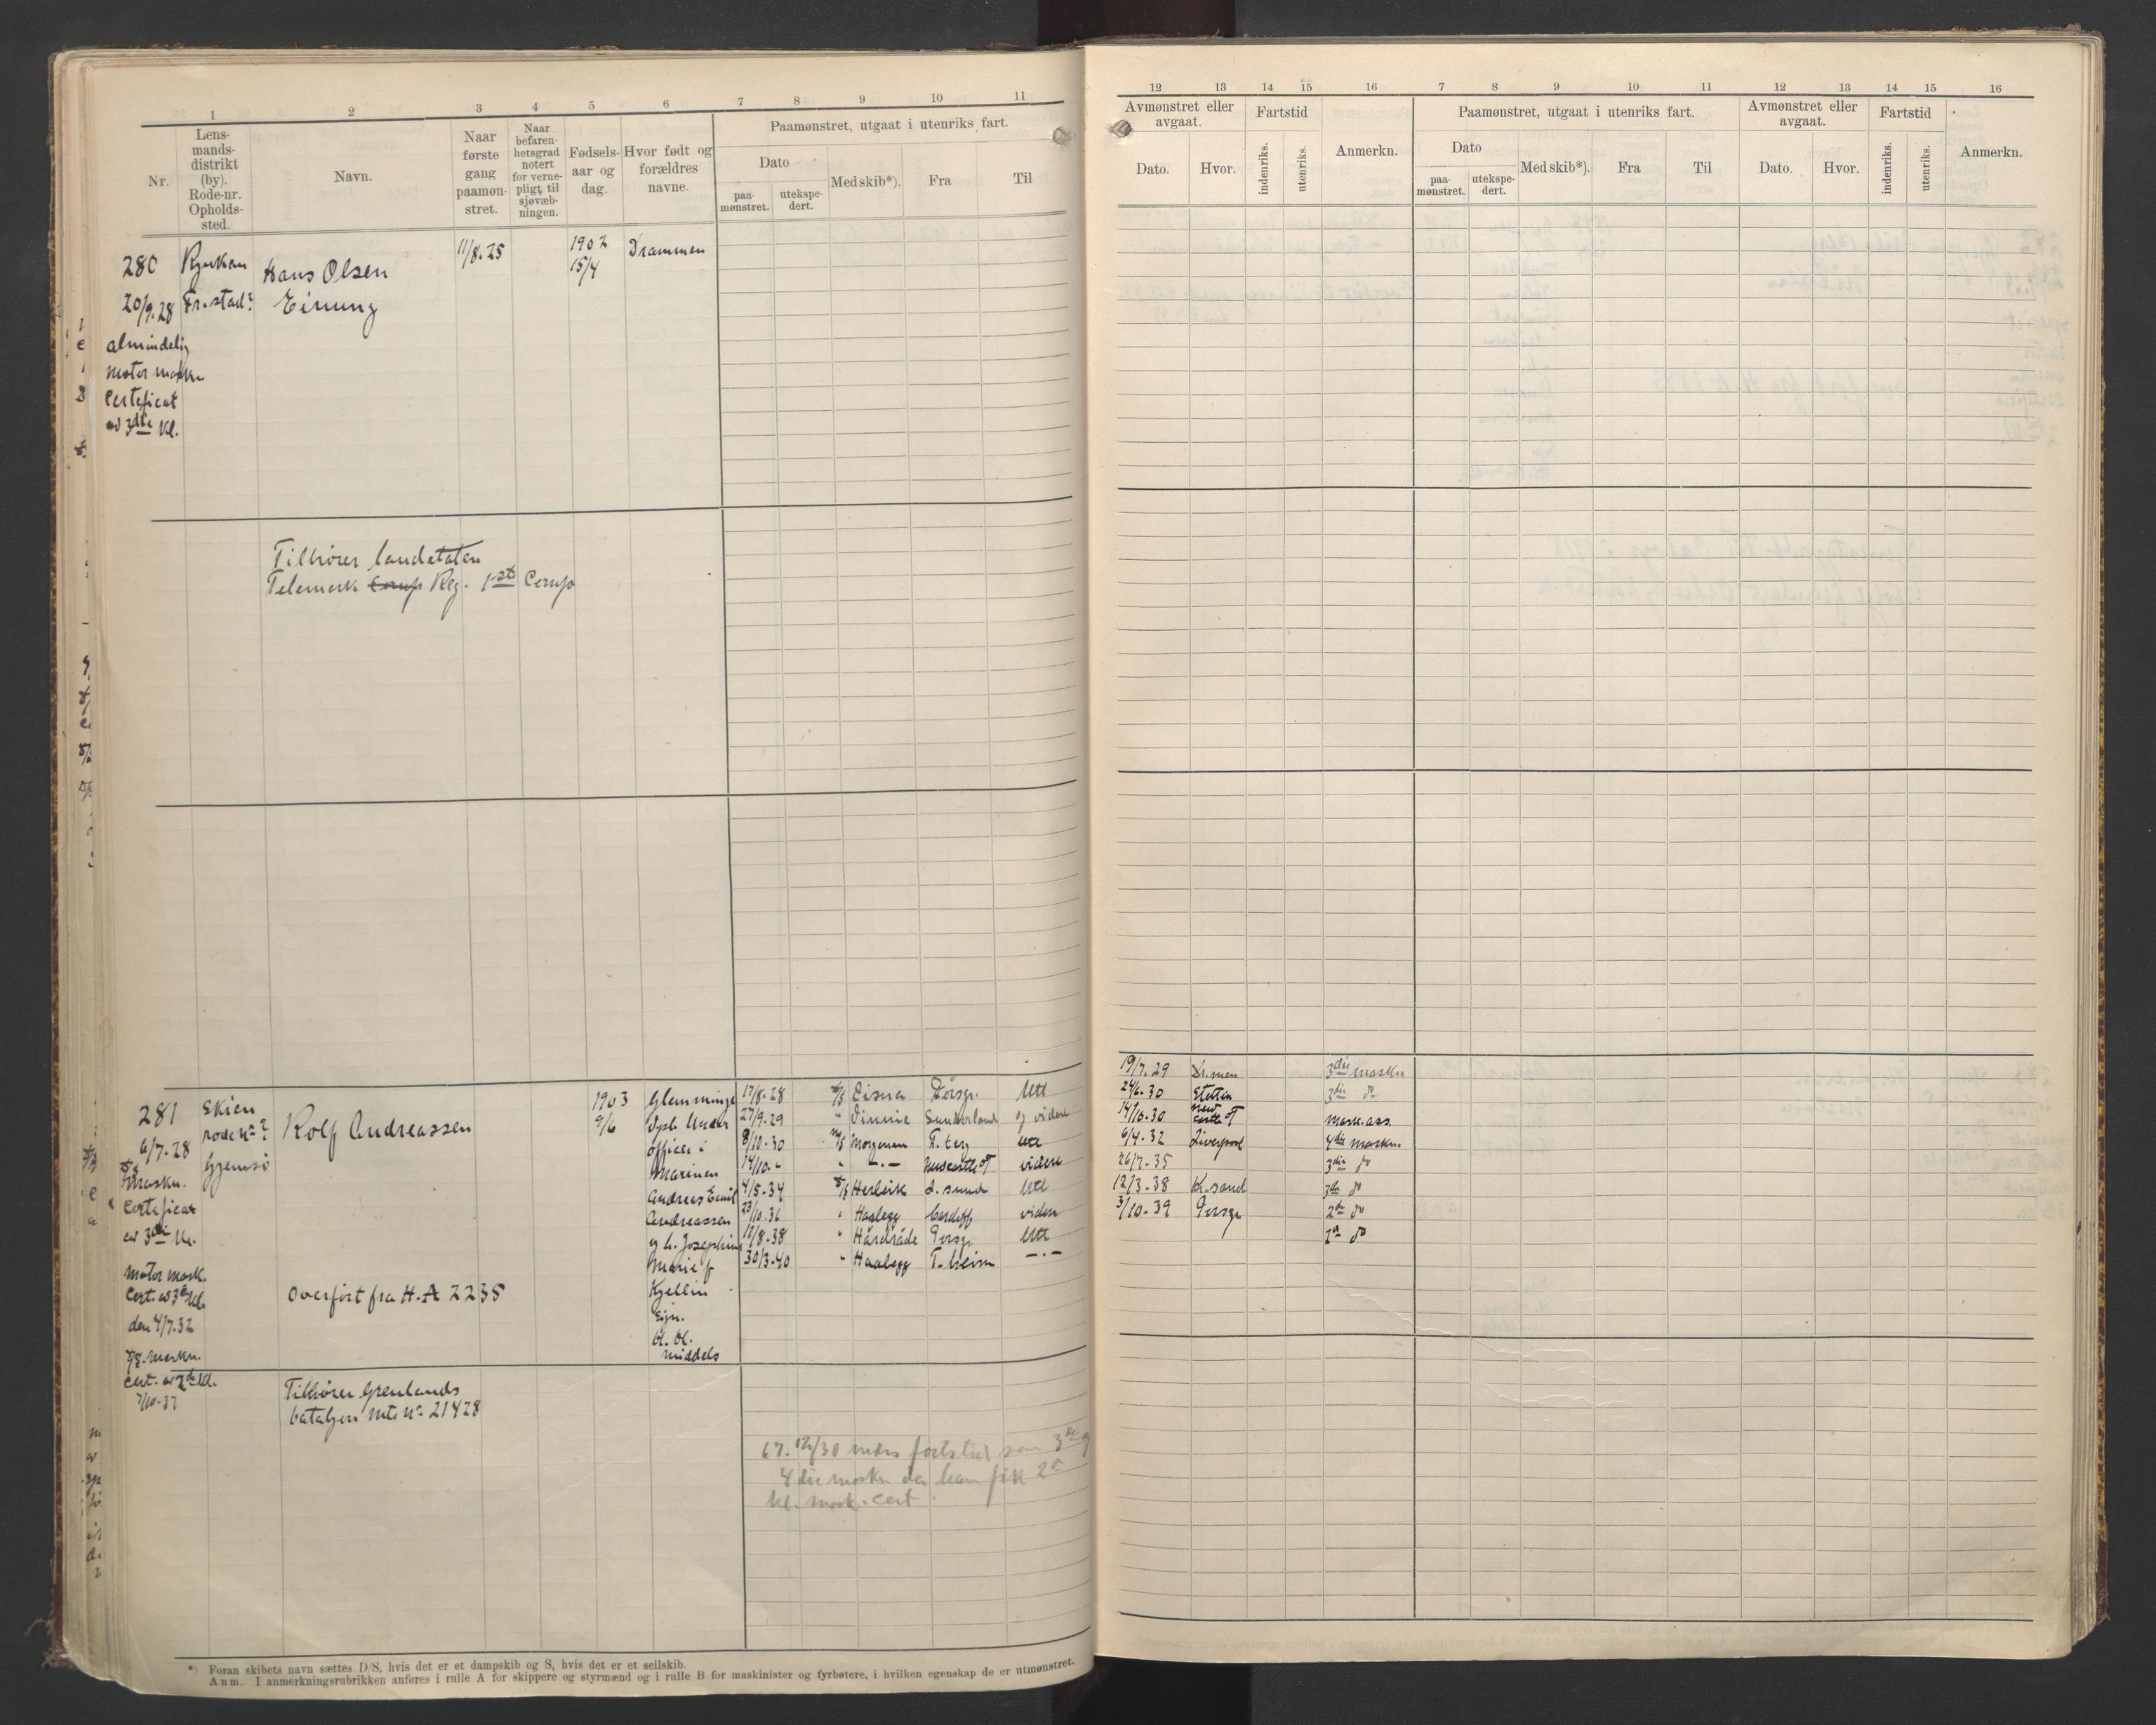 1 2 3 4 5 6 7 8 9 10 11
Nr.
Lens-
mands-
distrikt
(by).
Rode-nr.
Opholds-
sted.
Navn.
Naar
første
gang
paamøn-
stret.
Naar
befaren-
hetsgrad
notert
for verne-
pligt til
sjøvæb-
ningen.
Fødsels-
aar og
dag.
Hvor født og
forældres
navne.
Paamønstret, utgaat i utenriks fart.
Dato
paa-
mønstret.
utekspe-
dert.
Med skib*).
Fra
Til
280 Rjukan Hans Olsen 11/8.25 1902 Drammen
20/9.28 Fr.stad? Einung 15/4
almindelig
motor maskn
Certificat
av 3die kl.
Tilhører landetaten
Telemark Corups Reg. 1st Corups
281 Skien Rolf Andreassen 1903 Glemminge 17/8.28 Eisna Porsgr. Utl
6/7.28 rode no ? 9/6 Dysb. Under 27/9.29 " Vinnie Sunderland og videre
Gjemsø officer i 8/10.30 M/S Morgenen T.berg Utl
maskn. Marinen 14/10.- " -.- Newcastle oT videre
Certificat Andreas Emil 4/5.34 Herleik L.sund Utl
av 3die kl. Andreassen 23/10.36 " Haalegg Cardiff videre
og h. Josephine 17/8.38 " Hårdråde Porsgr. Utl
Marie f 30/3.40 " Haalegg T.heim -.-
motor mask. Kjellin
Cert. av 3die kl. overført fra H.A 2235 Eijn.
den 4/7.32 bl. bl.
maskn. middels
cert. av 2den kl.
7/10.37
Tilhører Grenlands
bataljon mts no 21428
67.12/30 mdrs fartstid som 3die og
4die maskn da han fik 2n
kl. mask. cert.
*) Foran skibets navn sættes D/S, hvis det er et dampskib og S, hvis det er et seilskib.
Anm. I anmerkningsrubrikken anføres i rulle A for skippere og styrmænd og i rulle B for maskinister og fyrbøtere, i hvilken egenskap de er utmønstret.
12 13 14 15 16 7 8 9 10 11 12 13 14 15 16
Avmønstret eller
avgaat.
Dato.
Hvor.
Fartstid
indenriks.
utenriks.
Anmerkn.
Paamønstret, utgaat i utenriks fart.
Dato
paa-
mønstret.
utekspe-
dert.
Med skib*).
Fra
Til
Avmønstret eller
avgaat.
Dato.
Hvor.
Fartstid
indenriks.
utenriks.
Anmerkn.
19/7.29 Dr.men 3die maskn
24/6.30 Stettin 3die do
14/10.30 New castle oT mask.ass.
6/4.32 Liverpool 4die maskn.
26/7.35 3die do
12/3.38 K.sand 3die do
3/10.39 Porsgr 2den do
2n do